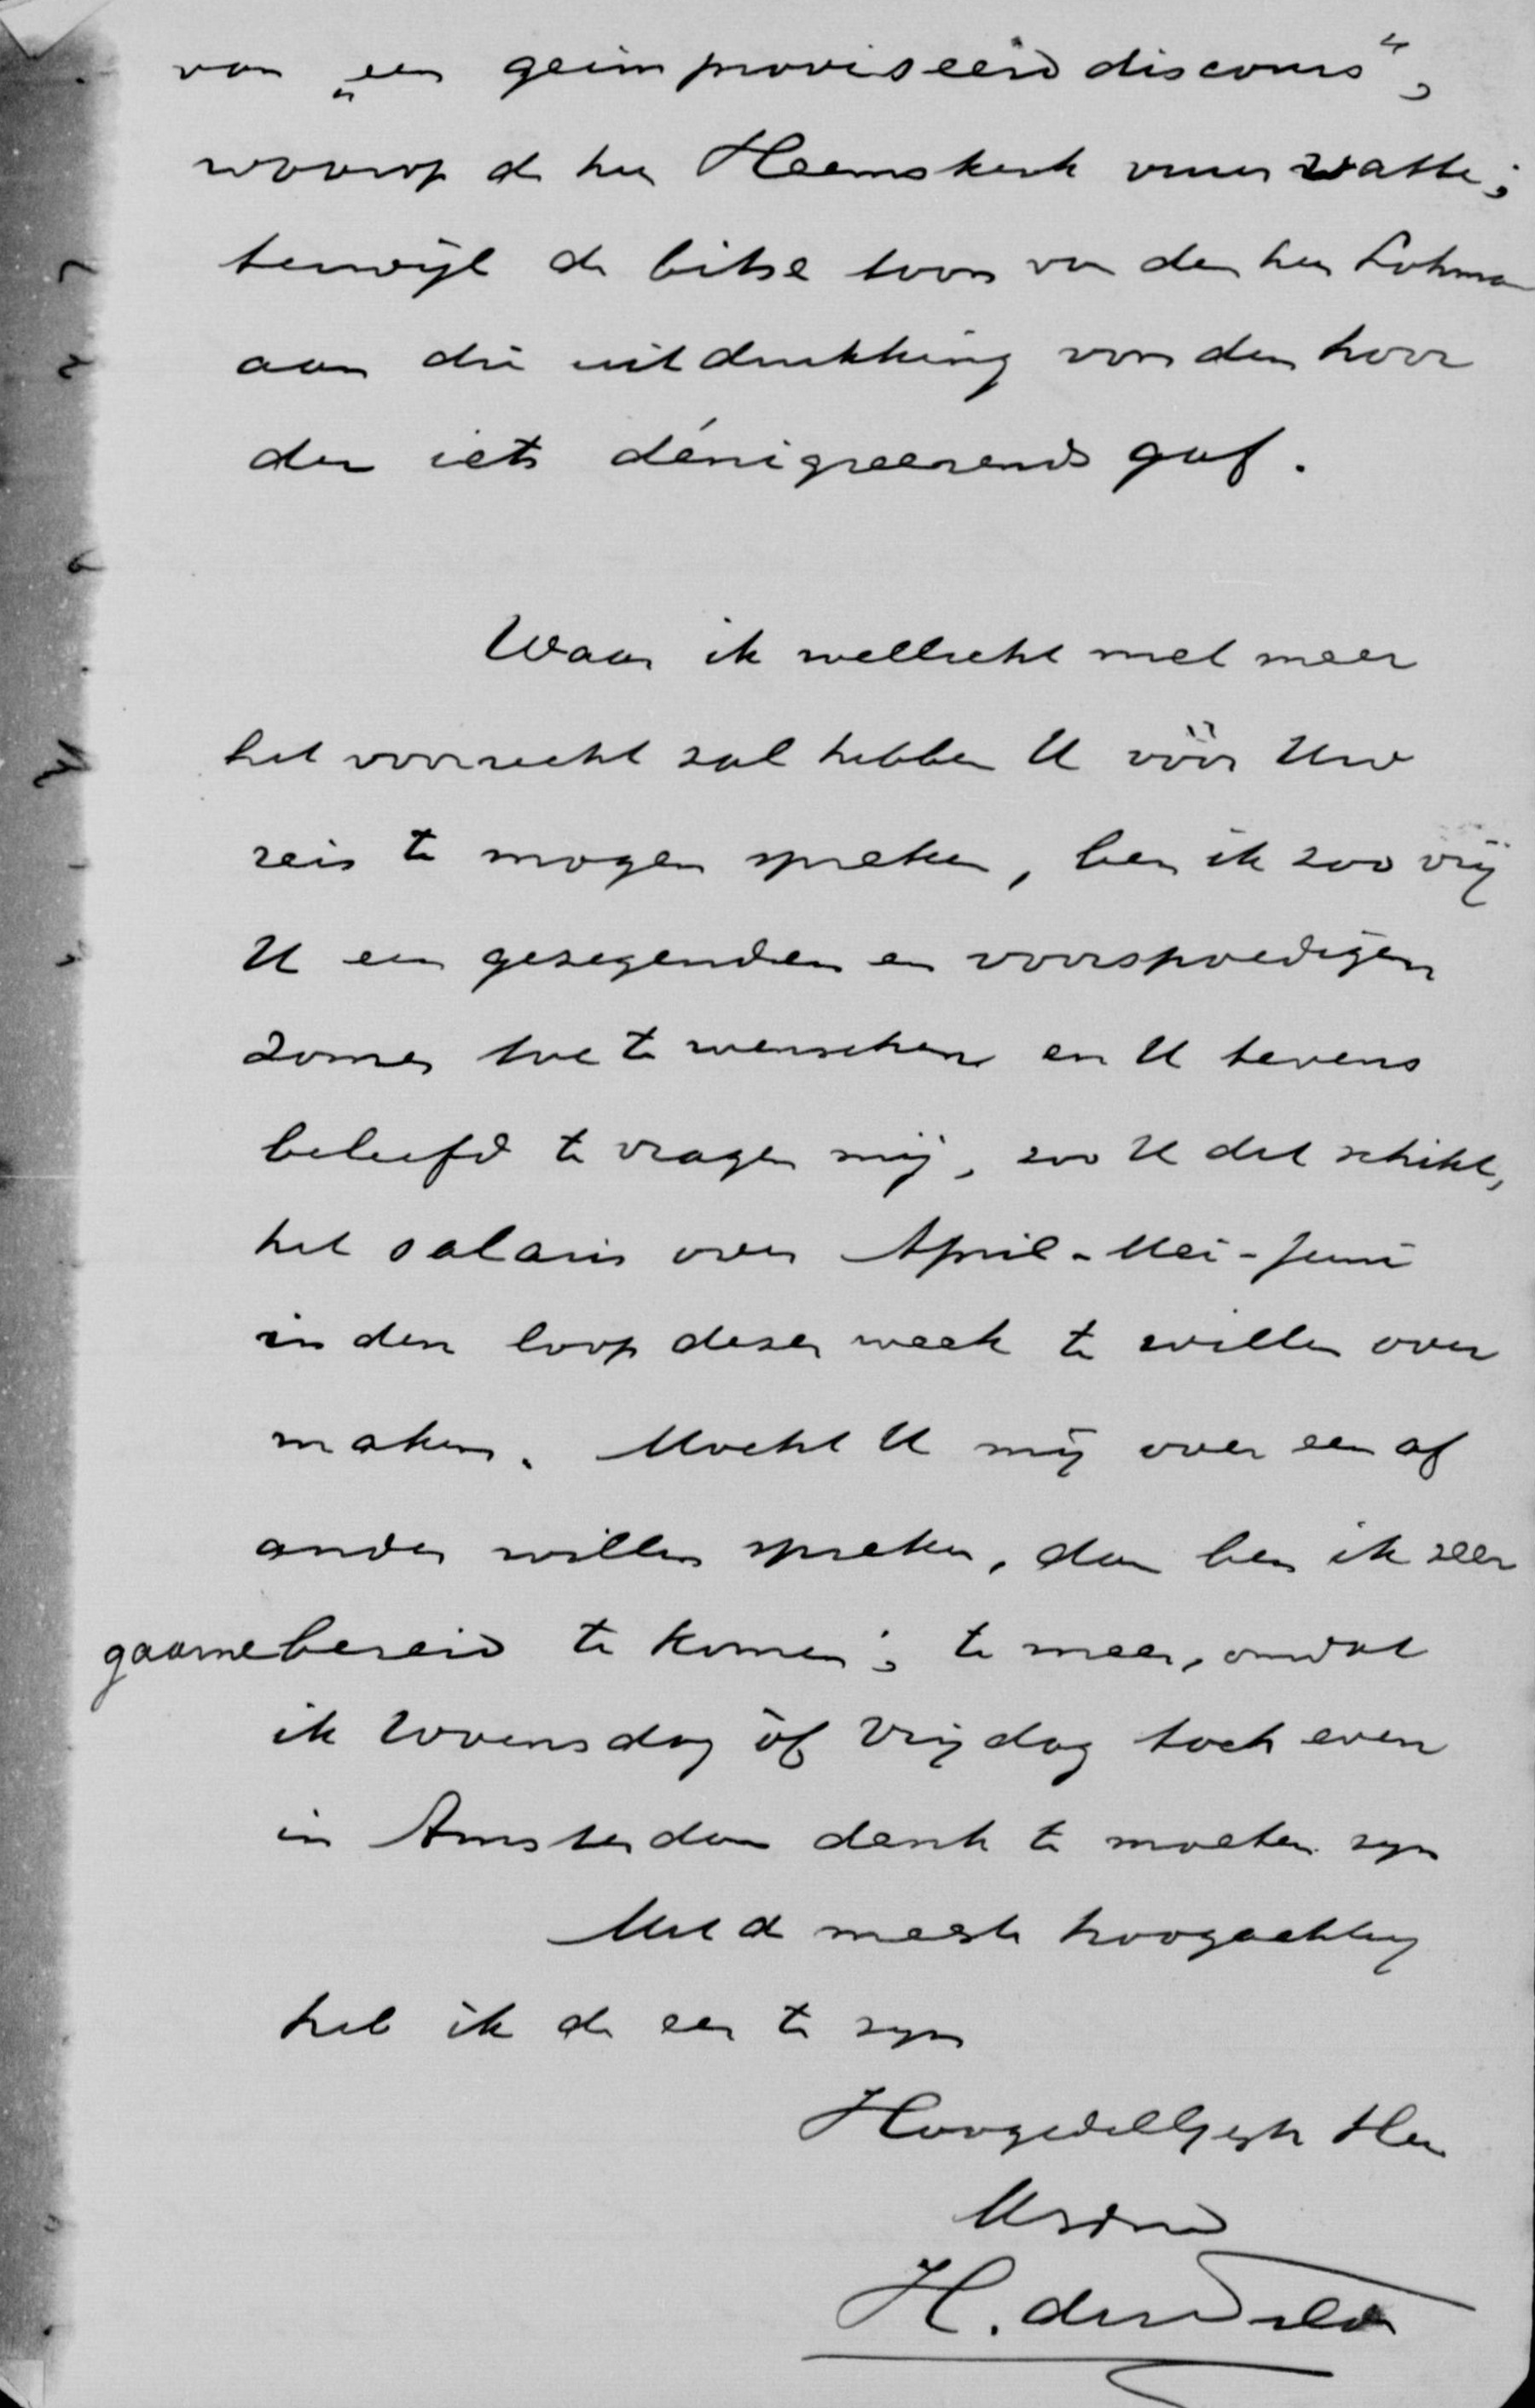 van „een geimproviseerd discours”,
waarop de heer Heemskerk vuur vatte;
terwijl de bitse toon van den heer Lohman
aan die uitdrukking van den hoor
der iets dénigreerends gaf.
Waar ik wellicht niet meer
het voorrecht zal hebben U vóór Uw
reis te mogen spreken, ben ik zoo vrij
U een gezegenden en voorspoedigen
zomer toe te wenschen en U tevens
beleefd te vragen mij, zoo U dat schikt,
het salaris over April-Mei-Juni
in den loop dezer week te willen over
maken. Mocht U mij over een of
ander willen spreken, dan ben ik zeer
gaarne bereid te komen; te meer, omdat
ik Woensdag òf Vrijdag toch even
in Amsterdam denk te moeten zijn
Met de meeste hoogachting
heb ik de eer te zijn
HoogEdelGestr Heer
Uw dw
H.